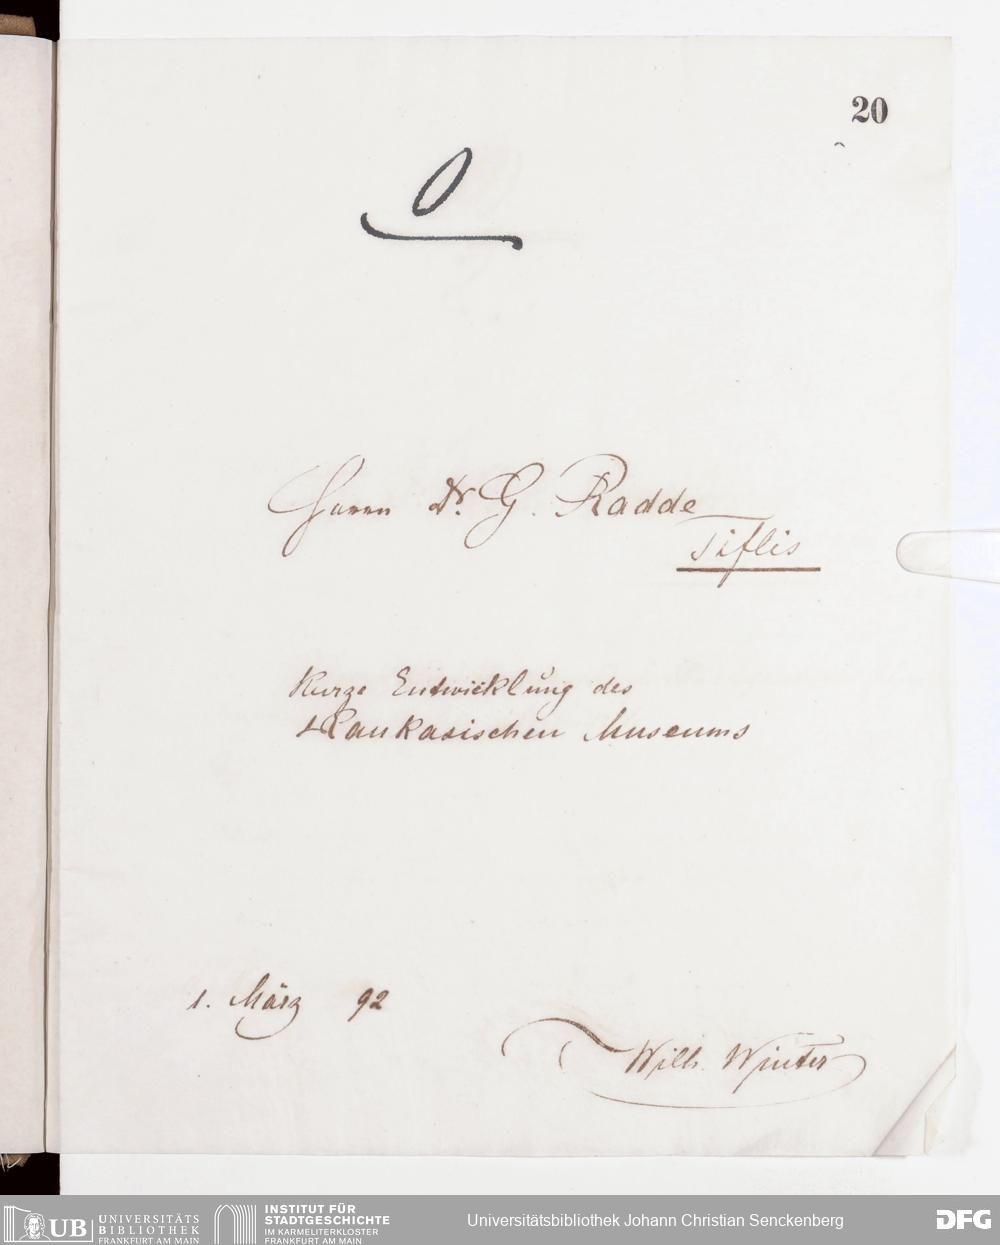 20
0
Herrn Dr. G. Radde
Tiflis
Kurze Entwicklung des
Kaukasischen Museums
1. März 92
Wilh. Winter
UB UNIVERSITÄTS
BIBLIOTHEK
FRANKFURT AM MAIN
INSTITUT FÜR
STADTGESCHICHTE
IM KARMELITERKLOSTER
FRANKFURT AM MAIN
Universitätsbibliothek Johann Christian Senckenberg
DFG